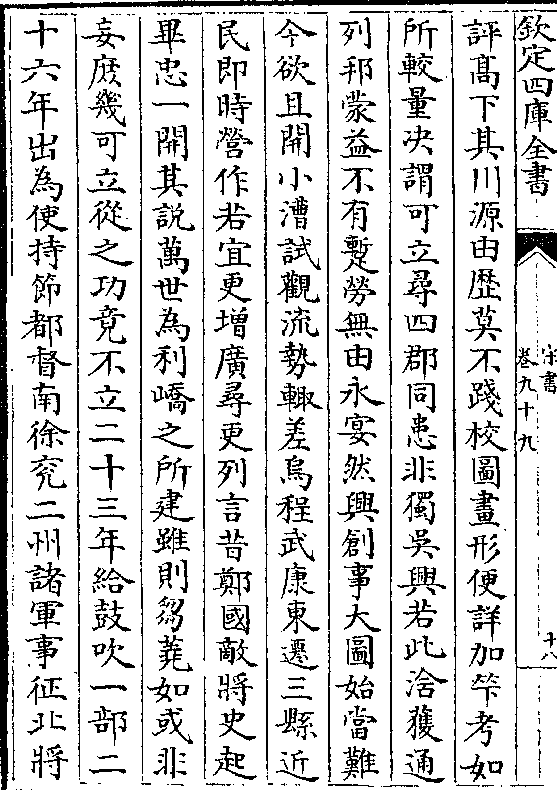 欽定四庫全書
宋書
卷九十九
十八
評髙下其川源由歴莫不踐校圖畫形便詳加筭考如
所較量决謂可立尋四郡同患非獨吳興若此浛獲通
列邦蒙益不有蹔勞無由永宴然興創事大圖始當難
今欲且開小漕試觀流勢輙差烏程武康東遷三縣近
民即時營作若宜更增廣尋更列言昔鄭國敵將史起
畢忠一開其説萬世為利嶠之所建雖則芻蕘如或非
妄庻幾可立從之功竟不立二十三年給鼓吹一部二
十六年出為使持節都督南徐兖二州諸軍事征北將